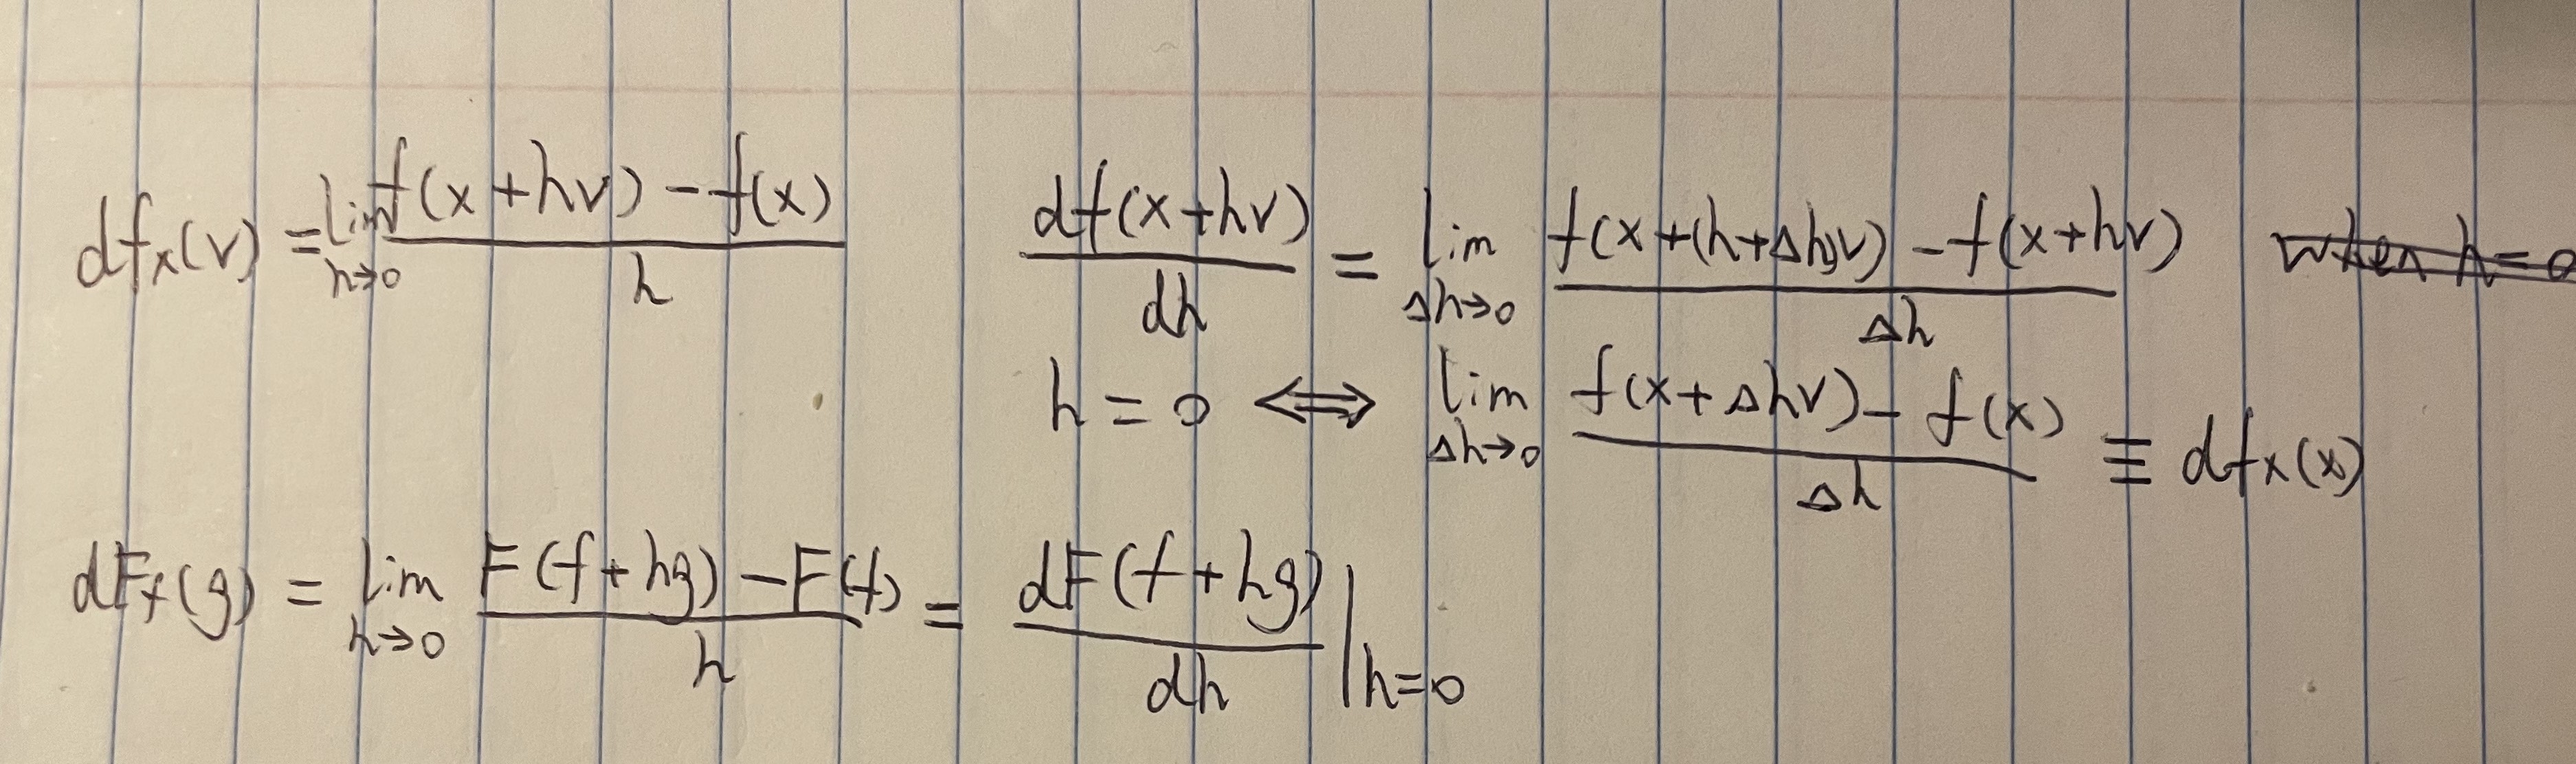 df_x(v) = lim_{h→0} \frac{f(x+hv) - f(x)}{h}
\frac{df(x+hv)}{dh} = lim_{Δh→0} \frac{f(x+(h+Δh)v) - f(x+hv)}{Δh} ~~when h=0~~
h = 0 ⟺ lim_{Δh→0} \frac{f(x+Δhv) - f(x)}{Δh} ≡ df_x(x)
dF_f(g) = lim_{h→0} \frac{F(f+hg) - F(f)}{h} = \frac{dF(f+hg)}{dh} |_{h=0}